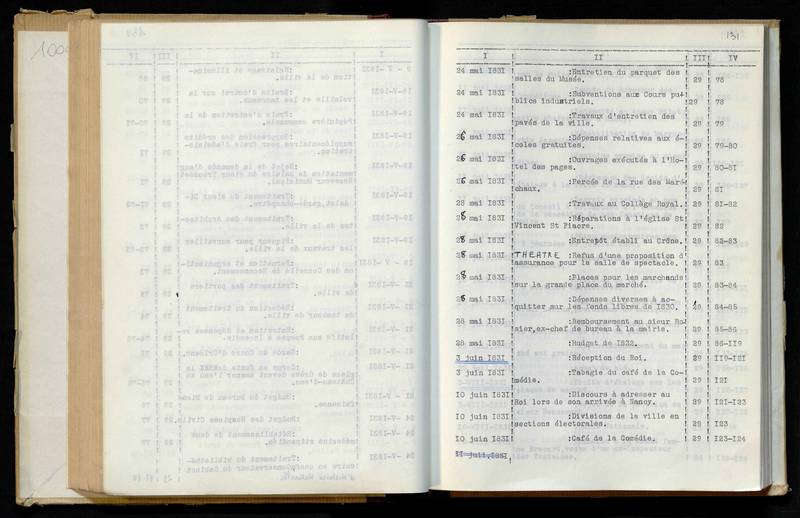 1000
131
I II III IV
24 mai I83I :Entretien du parquet des
salles du Musée. 29 78
24 mai I83I :Subventions aux Cours pu-
blics industriels. 29 78
24 mai I83I :Travaux d'entretien des
pavés de la ville. 29 79
26 mai I83I :Dépenses relatives aux é-
coles gratuites. 29 79-80
26 mai I83I :Ouvrages exécutés à l'Ho-
tel des pages. 29 80-8I
26 mai I83I :Percée de la rue des Maré-
chaux. 29 8I
28 mai I83I :Travaux au Collège Royal. 29 8I-82
28 mai I83I :Réparations à l'église St
Vincent St Fiacre. 29 82
28 mai I83I :Entrepôt établi au Crône. 29 82-83
28 mai I83I THEATRE :Refus d'une proposition d'
assurance pour la salle de spectacle. 29 83
28 mai I83I :Places pour les marchands
sur la grande place du marché. 29 83-84
28 mai I83I :Dépenses diverses à ac-
quitter sur les fonds libres de I830. 29 84-85
28 mai I83I :Remboursement au sieur Ro-
sier,ex-chef de bureau à la mairie. 29 85-86
28 mai I83I :Budget de I832. 29 86-II9
3 juin I83I :Réception du Roi. 29 II9-I2I
3 juin I83I :Tabagie du café de la Co-
médie. 29 I2I
I0 juin I83I :Discours à adresser au
Roi lors de son arrivée à Nancy. 29 I2I-I23
I0 juin I83I :Divisions de la ville en
sections électorales. 29 I23
I0 juin I83I :Café de la Comédie. 29 I23-I24